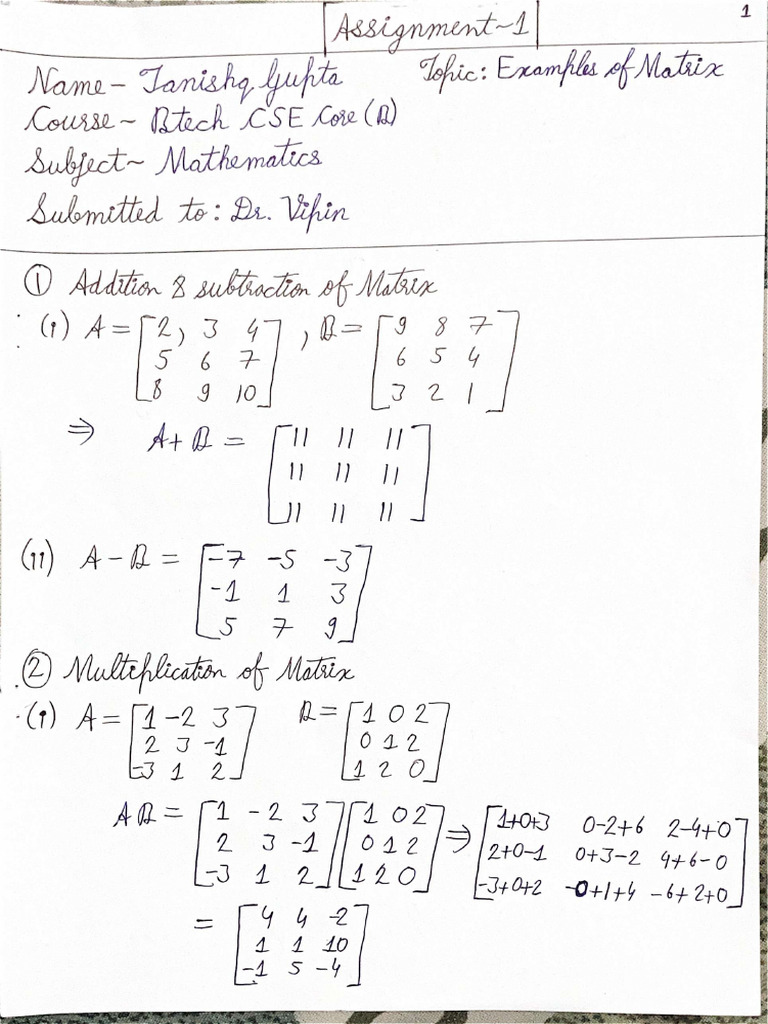 1
Assignment~1
Name- Tanishq Gupta Topic: Examples of Matrix
Course~ Btech CSE Core (B)
Subject~ Mathematics
Submitted to: Dr. Vipin
① Addition & subtraction of Matrix
(i) A = [2, 3 4] , B = [9 8 7]
5 6 7 6 5 4
8 9 10 3 2 1
⇒ A+B = [11 11 11]
11 11 11
11 11 11
(ii) A-B = [-7 -5 -3]
-1 1 3
5 7 9
② Multiplication of Matrix
(i) A = [1 -2 3] B = [1 0 2]
2 3 -1 0 1 2
-3 1 2 1 2 0
AB = [1 -2 3] [1 0 2] ⇒ [1+0+3 0-2+6 2-4+0]
2 3 -1 0 1 2 2+0-1 0+3-2 4+6-0
-3 1 2 1 2 0 -3+0+2 -0+1+4 -6+2+0
= [4 4 -2]
1 1 10
-1 5 -4